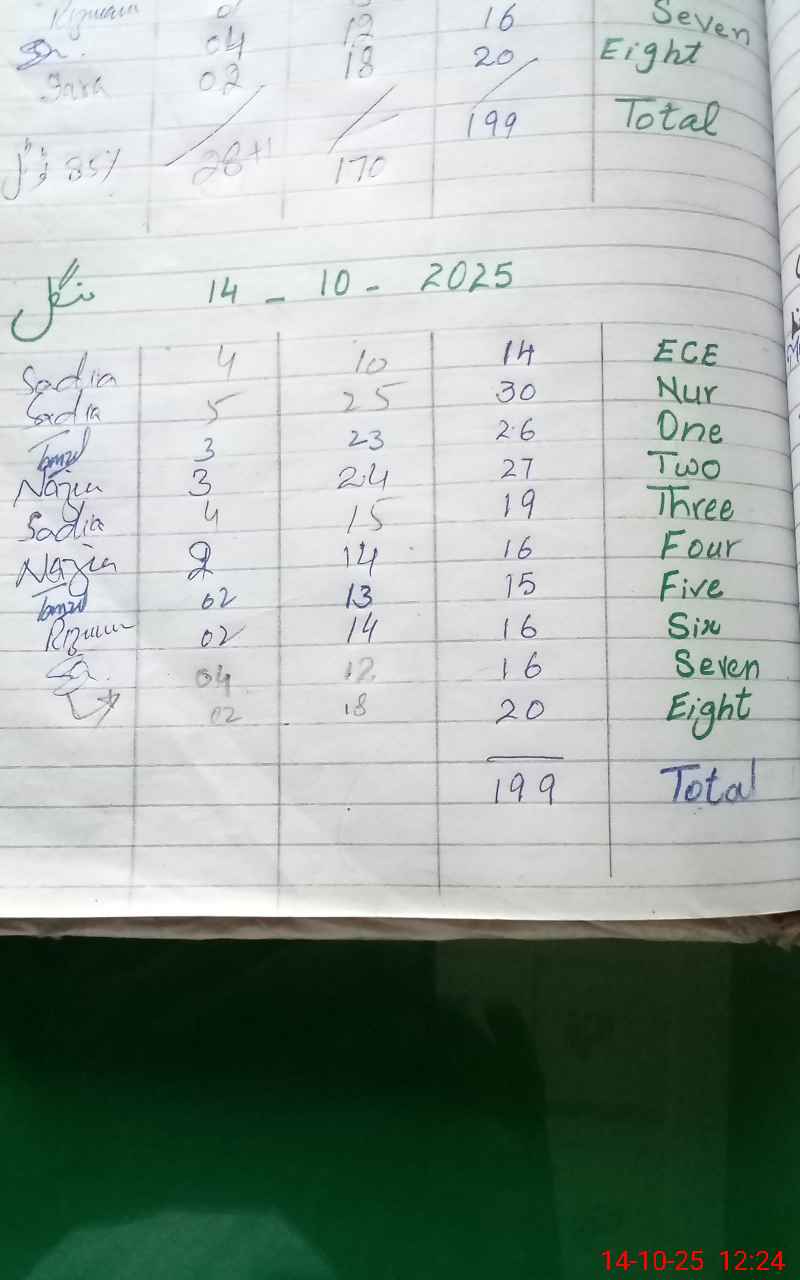 16 Seven
04 18 20 Eight
02
199 Total
85% 28+1 170
منگل 14 - 10 - 2025
Sadia 4 10 14 ECE
Sadia 5 25 30 Nur
3 23 26 One
Nazia 3 24 27 Two
Sadia 4 15 19 Three
Nazia 2 14 16 Four
02 13 15 Five
02 14 16 Six
04 12 16 Seven
02 18 20 Eight
199 Total
14-10-25 12:24